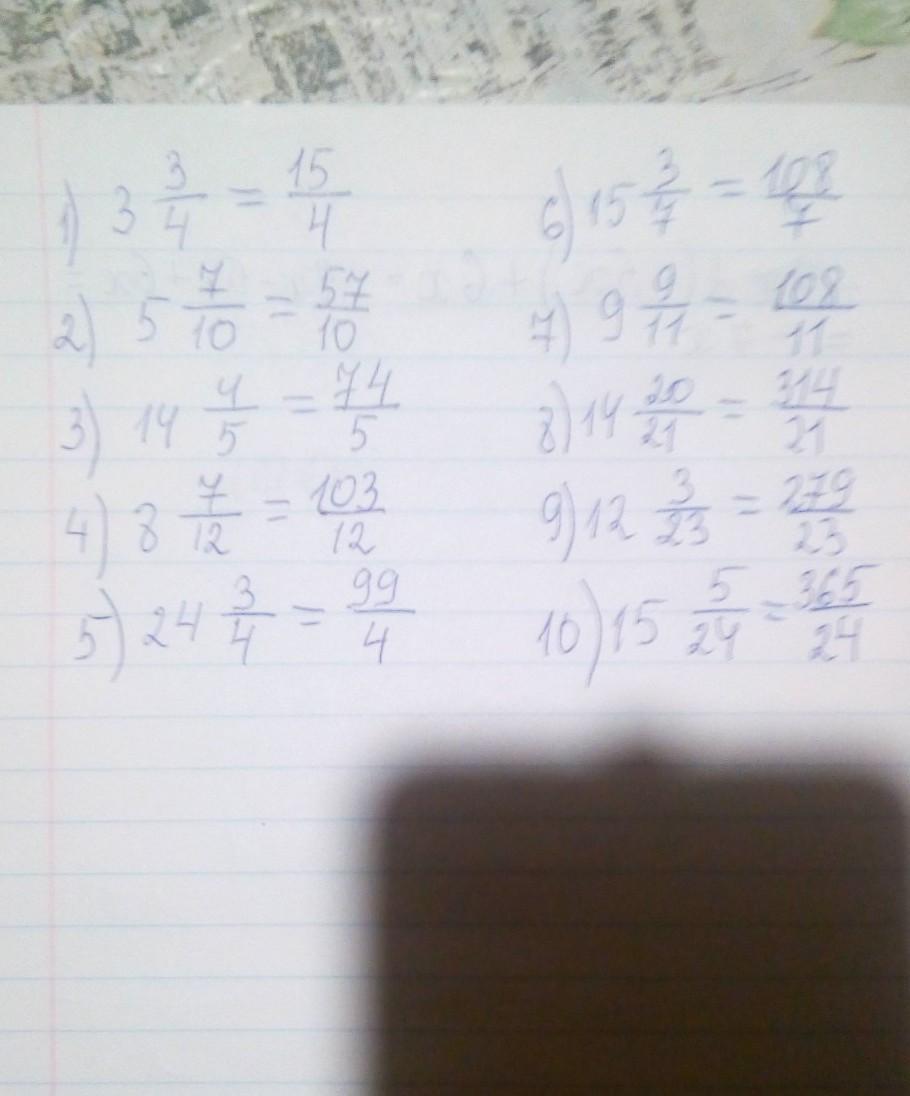 1) 3 3/4 = 15/4
2) 5 7/10 = 57/10
3) 14 4/5 = 74/5
4) 8 7/12 = 103/12
5) 24 3/4 = 99/4
6) 15 3/7 = 108/7
7) 9 9/11 = 108/11
8) 14 20/21 = 314/21
9) 12 3/23 = 279/23
10) 15 5/24 = 365/24